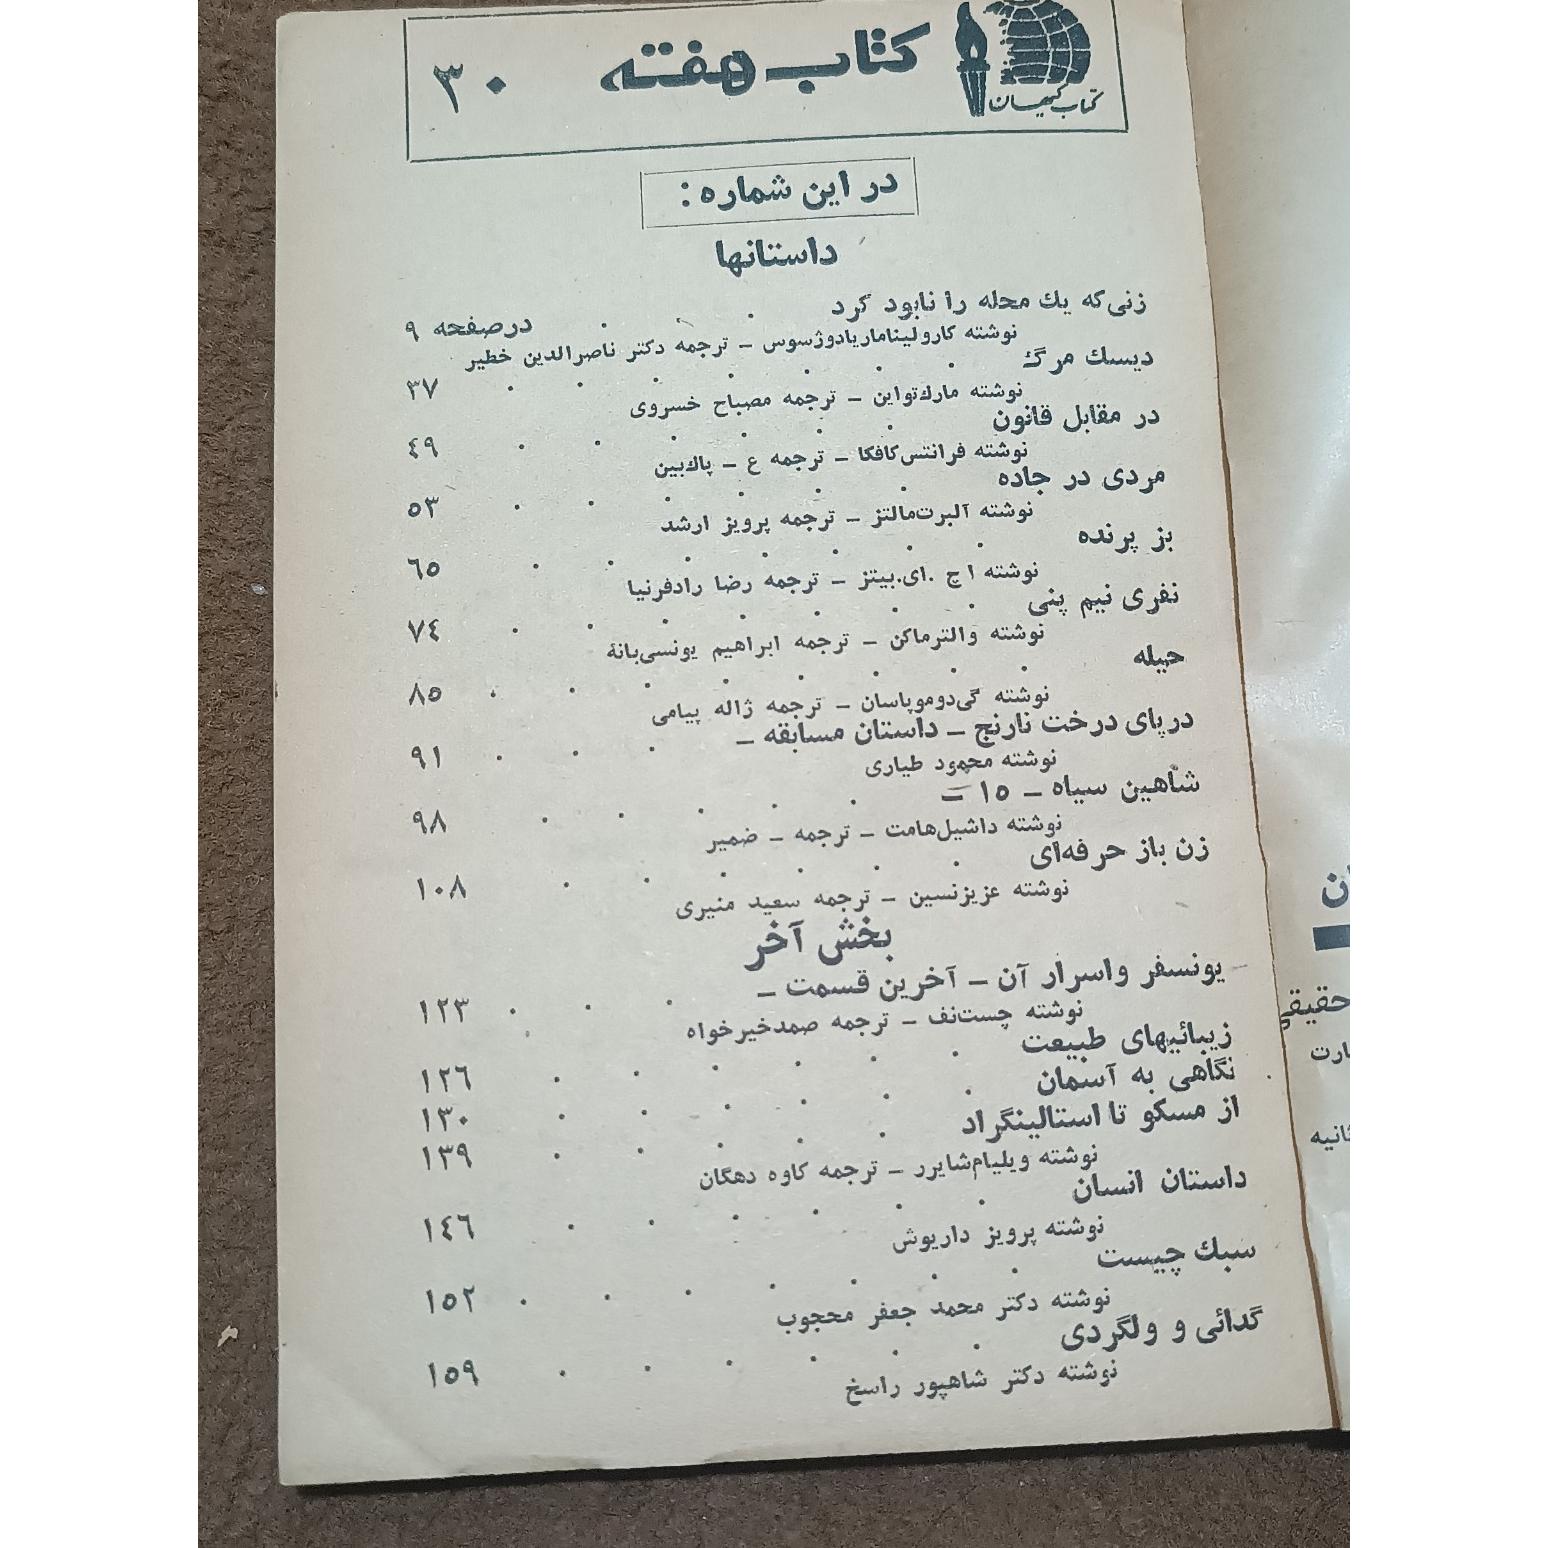 کتاب هفته ۳۰
کتاب کیهان
در این شماره :
داستانها
زنی که یك محله را نابود کرد . . . درصفحه ۹
نوشته کارولیناماریادوژسوس ـ ترجمه دکتر ناصرالدین خطیر
دیسك مرگ . . . . . . . ۳۷
نوشته مارك‌تواین ـ ترجمه مصباح خسروی
در مقابل قانون . . . . . . ٤۹
نوشته فرانتس‌کافکا ـ ترجمه ع ـ پاك‌بین
مردی در جاده . . . . . . ۵۳
نوشته آلبرت‌مالتز ـ ترجمه پرویز ارشد
بز پرنده . . . . . . . ٦۵
نوشته اچ .ای.بیتز ـ ترجمه رضا رادفرنیا
نفری نیم پنی . . . . . . . ۷٤
نوشته والترماکن ـ ترجمه ابراهیم یونسی‌بانهٔ
حیله . . . . . . . . ۸۵
نوشته گی‌دوموپاسان ـ ترجمه ژاله پیامی
درپای درخت نارنج ـ داستان مسابقه ـ . . . ۹۱
نوشته محمود طیاری
شاهین سیاه ـ ۱۵ ـ . . . . . ۹۸
نوشته داشیل‌هامت ـ ترجمه ـ ضمیر
زن باز حرفه‌ای . . . . . . ۱۰۸
نوشته عزیزنسین ـ ترجمه سعید منیری
بخش آخر
یونسفر واسرار آن ـ آخرین قسمت ـ . . . ۱۲۳
نوشته چست‌نف ـ ترجمه صمدخیرخواه
زیبائیهای طبیعت . . . . . . ۱۲٦
نگاهی به آسمان . . . . . . ۱۳۰
از مسکو تا استالینگراد . . . . . ۱۳۹
نوشته ویلیام‌شایرر ـ ترجمه کاوه دهگان
داستان انسان . . . . . . ۱٤٦
نوشته پرویز داریوش
سبك چیست . . . . . . . ۱۵۲
نوشته دکتر محمد جعفر محجوب
گدائی و ولگردی . . . . . . ۱۵۹
نوشته دکتر شاهپور راسخ